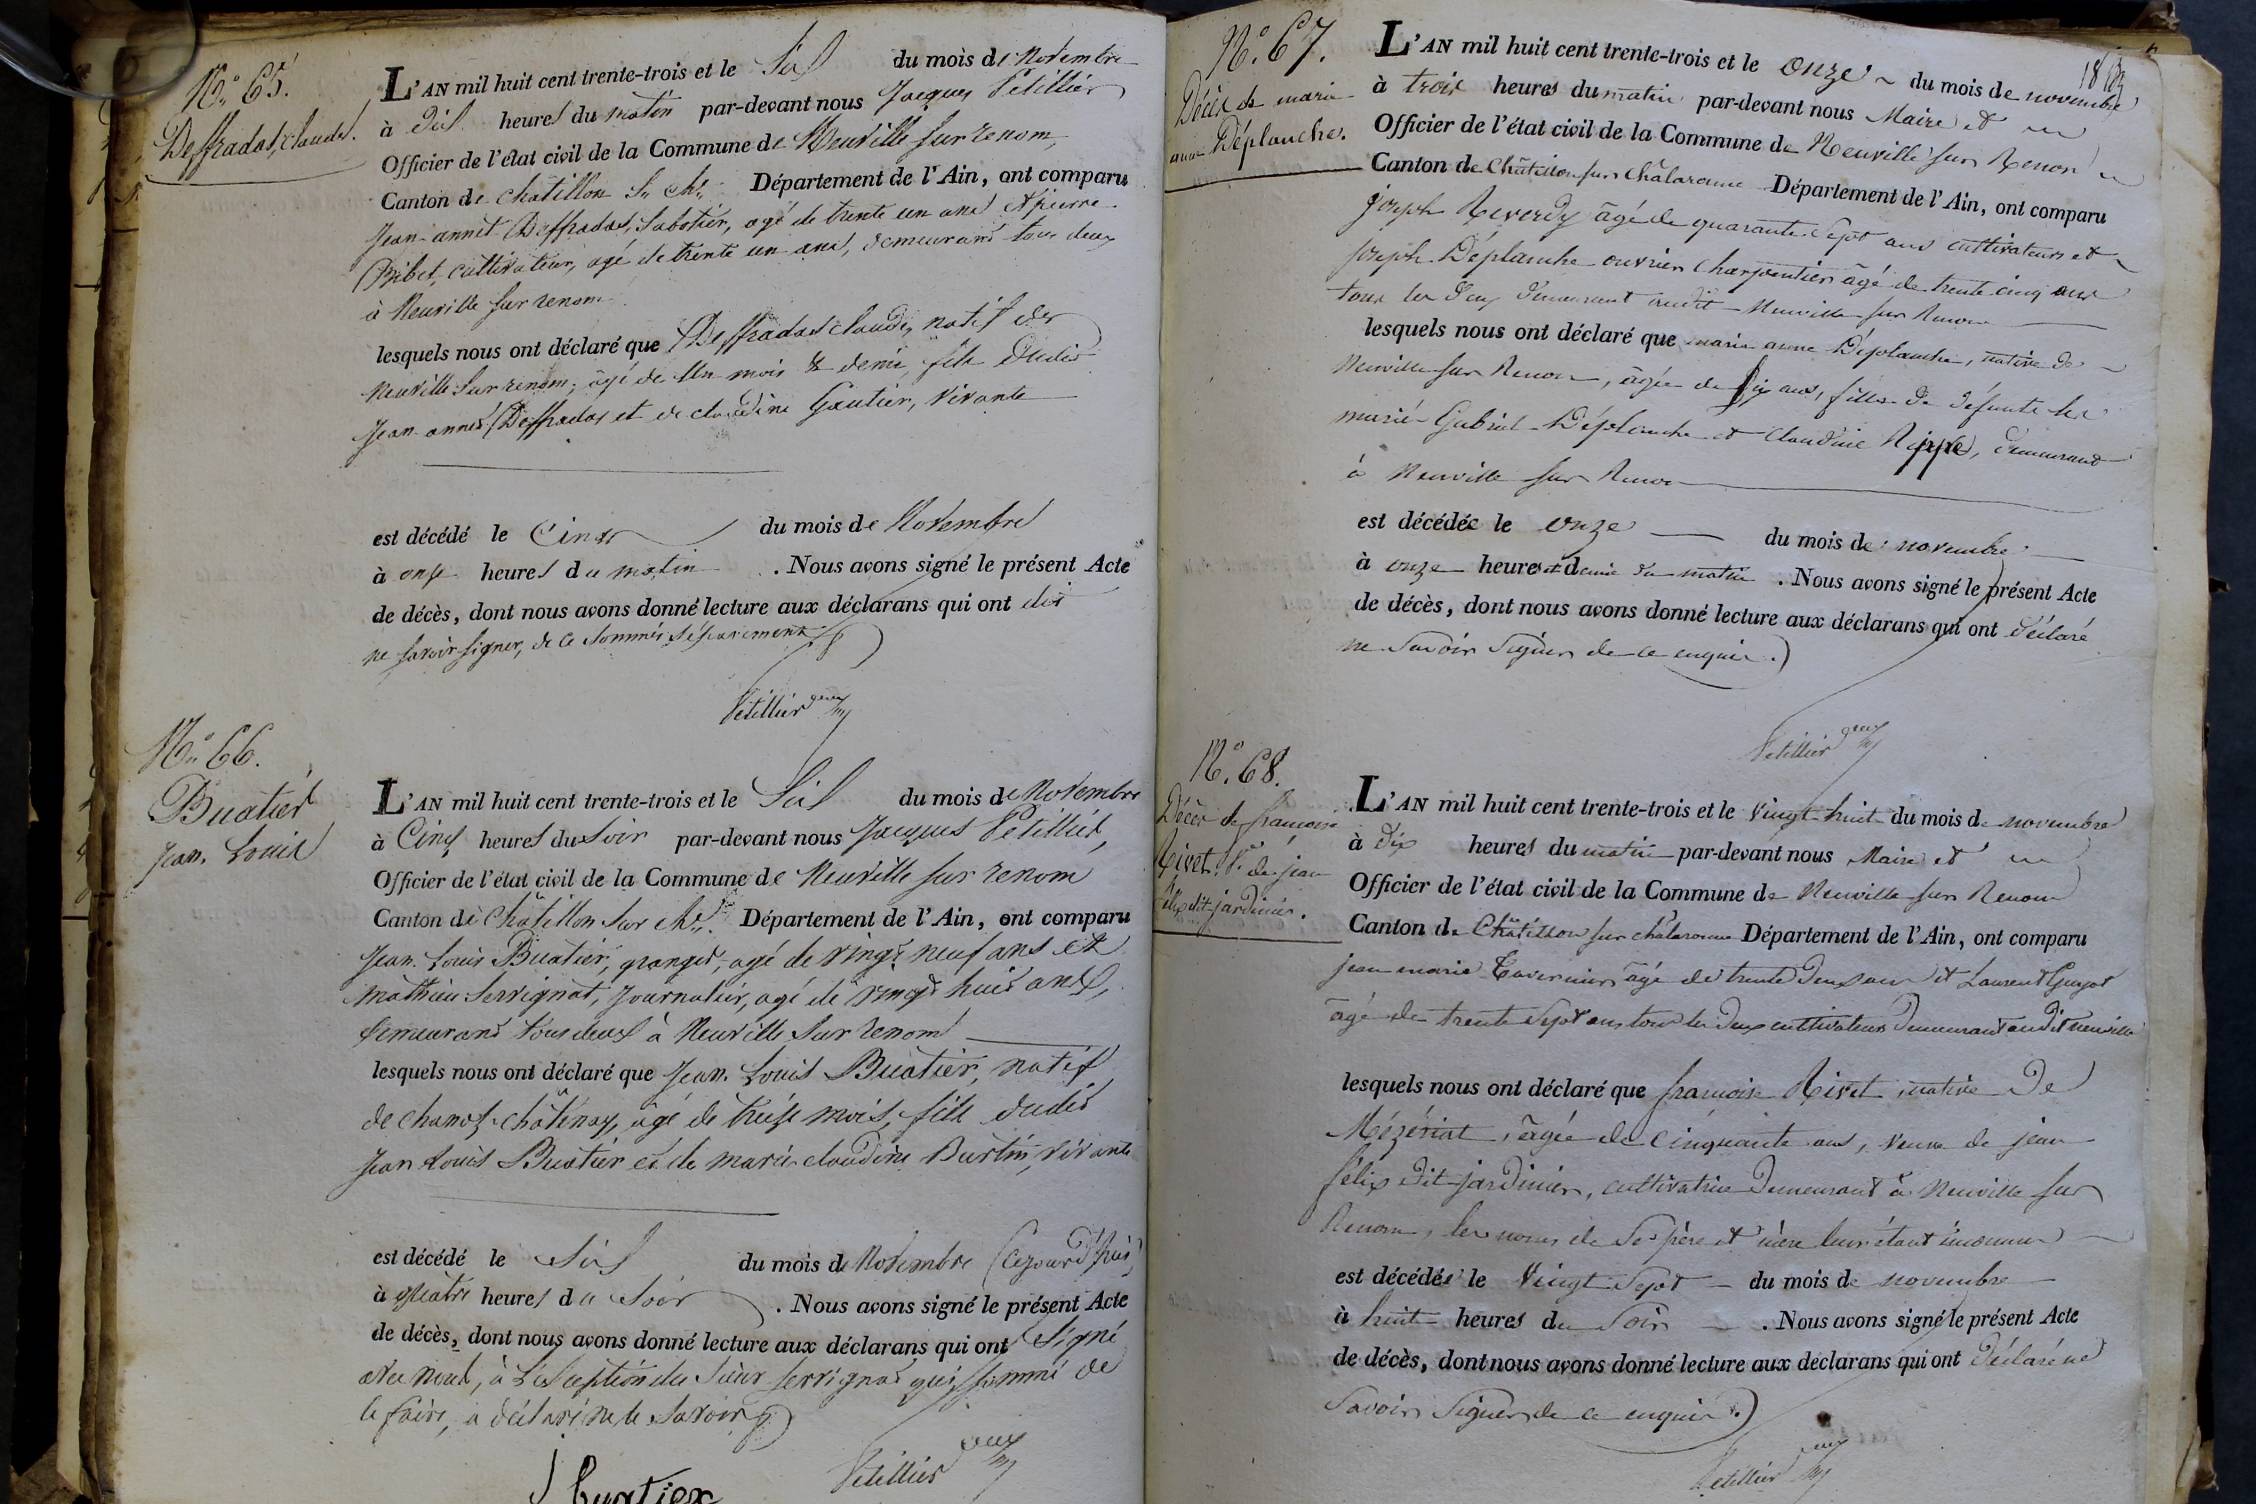 N.° 65.
Deffradas, claude.
L'AN mil huit cent trente-trois et le Six du mois de Novembre
à Dix heures du matin par-devant nous Jacques Petillier
Officier de l'état civil de la Commune de Neuville sur renom,
Canton de chatillon S. Ch. Département de l'Ain, ont comparu
Jean-annet Deffradas, Sabotier, agé de trente un ans & pierre
Bibet, cultivateur, agé de trente un ans, demeurans tous deux
à Neuville sur renom
lesquels nous ont déclaré que Deffradas claude, natif de
Neuville Sur renom, âgé de Un mois & demi, fils dudit
Jean annet Deffradas et de claudine Gautier, vivante
est décédé le Cinq du mois de Novembre
à onse heures du matin . Nous avons signé le présent Acte
de décès, dont nous avons donné lecture aux déclarans qui ont dit
ne savoir signer, de ce Sommés séparement
Petillier
N.° 66.
Buatier
Jean Louis
L'AN mil huit cent trente-trois et le Six du mois de Novembre
à Cinq heures du Soir par-devant nous Jacques Petillier,
Officier de l'état civil de la Commune de Neuville sur renom
Canton de Châtillon Sur Ch. Département de l'Ain, ont comparu
Jean Louis Buatier, granger, agé de vingt neuf ans et
mathieu Servignat, Journalier, agé de vingt huit ans,
demeurans tous deux à Neuville Sur renom
lesquels nous ont déclaré que Jean Louis Buatier, natif
de chanoz-châtenay, âgé de treise mois, fils dudit
Jean Louis Buatier et de marie claudine Burtin, vivante
est décédé le Six du mois de Novembre (cejourd'hui)
à quatre heures du Soir . Nous avons signé le présent Acte
de décès, dont nous avons donné lecture aux déclarans qui ont Signé
avec nous, à l'exception du Sieur Servignat qui, sommé de
le faire, a déclaré ne le Savoir
Petillier
Buatier
N.° 67.
Décès de marie
anne Déplanche.
L'AN mil huit cent trente-trois et le onze du mois de novembre
à trois heures du matin par-devant nous Maire et
Officier de l'état civil de la Commune de Neuville sur Renon
Canton de Châtillon sur Châlaronne Département de l'Ain, ont comparu
joseph Reverdy âgé de quarante Sept ans cultivateur et
joseph Déplanche ouvrier charpentier âgé de trente cinq ans
tous les deux demeurant audit Neuville sur Renon
lesquels nous ont déclaré que marie anne Déplanche, native de
Neuville sur Renon, âgée de Six ans, fille de défunts les
mariés Gabriel Déplanche et Claudine Rippe, demeurant
à Neuville sur Renon
est décédée le onze du mois de novembre
à onze heures et demie du matin . Nous avons signé le présent Acte
de décès, dont nous avons donné lecture aux déclarans qui ont déclaré
ne Savoir Signer de ce enquis.
Petillier
N.° 68.
Décès de françoise
Rivet V.e de jean
félix dit jardinier.
L'AN mil huit cent trente-trois et le vingt huit du mois de novembre
à dix heures du matin par-devant nous Maire et
Officier de l'état civil de la Commune de Neuville sur Renon
Canton de Châtillon sur châlaronne Département de l'Ain, ont comparu
jean marie Tavernier âgé de trente deux ans et Laurent Guyot
âgé de trente Sept ans tous les deux cultivateurs demeurant audit neuville
lesquels nous ont déclaré que françoise Rivet, native De
Mézériat, âgée de cinquante ans, veuve de jean
félix dit jardinier, cultivatrice demeurant à Neuville sur
Renon, les noms de Ses père et mère leur étant inconnus
est décédée le vingt Sept du mois de novembre
à huit heures du Soir . Nous avons signé le présent Acte
de décès, dont nous avons donné lecture aux déclarans qui ont déclaré ne
Savoir Signer de ce enquis.
Petillier